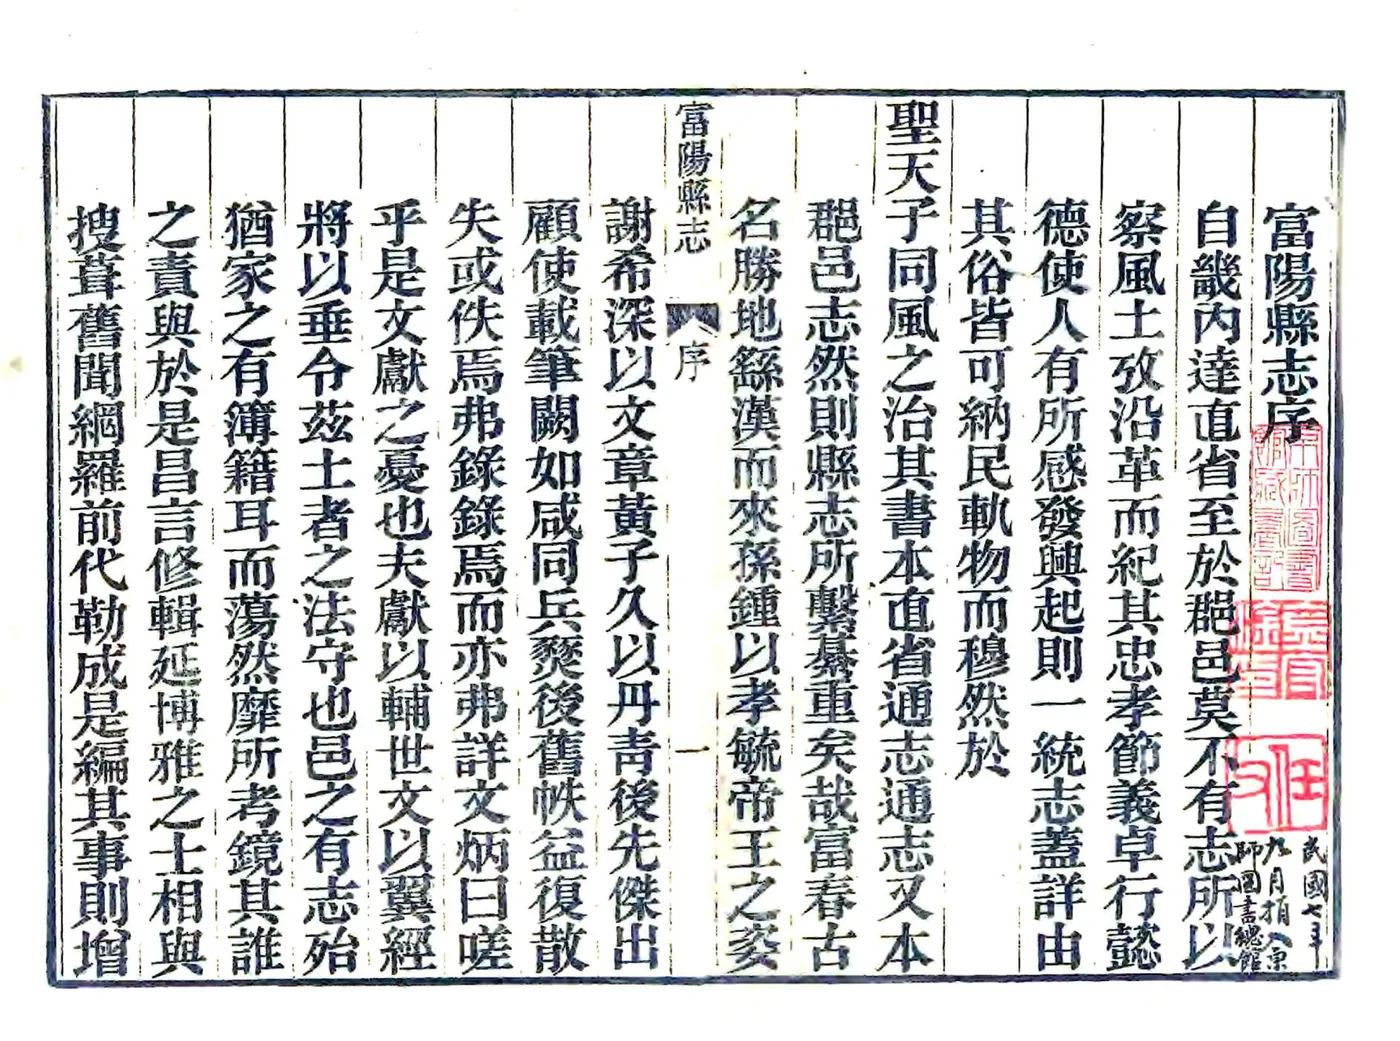 富陽縣志序
自畿内達直省至於郡邑莫不有志所以
察風土攷沿革而紀其忠孝節義卓行懿
德使人有所感發興起則一統志蓋詳由
其俗皆可納民軌物而穆然於
聖天子同風之治其書本直省通志通志又本
郡邑志然則縣志所繫綦重矣哉富春古
名勝地繇漢而來孫鍾以孝毓帝王之姿
富陽縣志
序
一
謝希深以文章黃子久以丹青後先傑出
顧使載筆闕如咸同兵燹後舊帙益復散
失或佚焉弗錄錄焉而亦弗詳文炳曰嗟
乎是文獻之憂也夫獻以輔世文以翼經
將以垂令茲士者之法守也邑之有志殆
猶家之有簿籍耳而蕩然靡所考鏡其誰
之責與於是昌言修輯延博雅之士相與
搜葺舊聞網羅前代勒成是編其事則增
民國七年
九月捐入京
師圖書總館
京師圖書
館藏書記